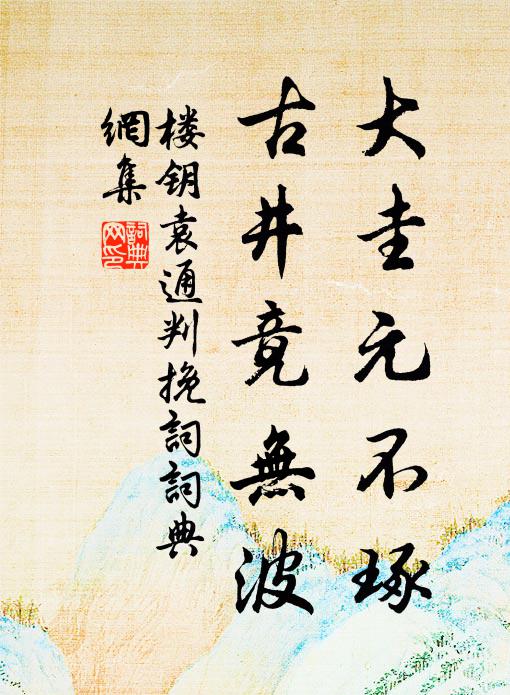 大圭元不琢
古井竟無波
楼钥袁通判挽詞詞典
網集
詞典
网印